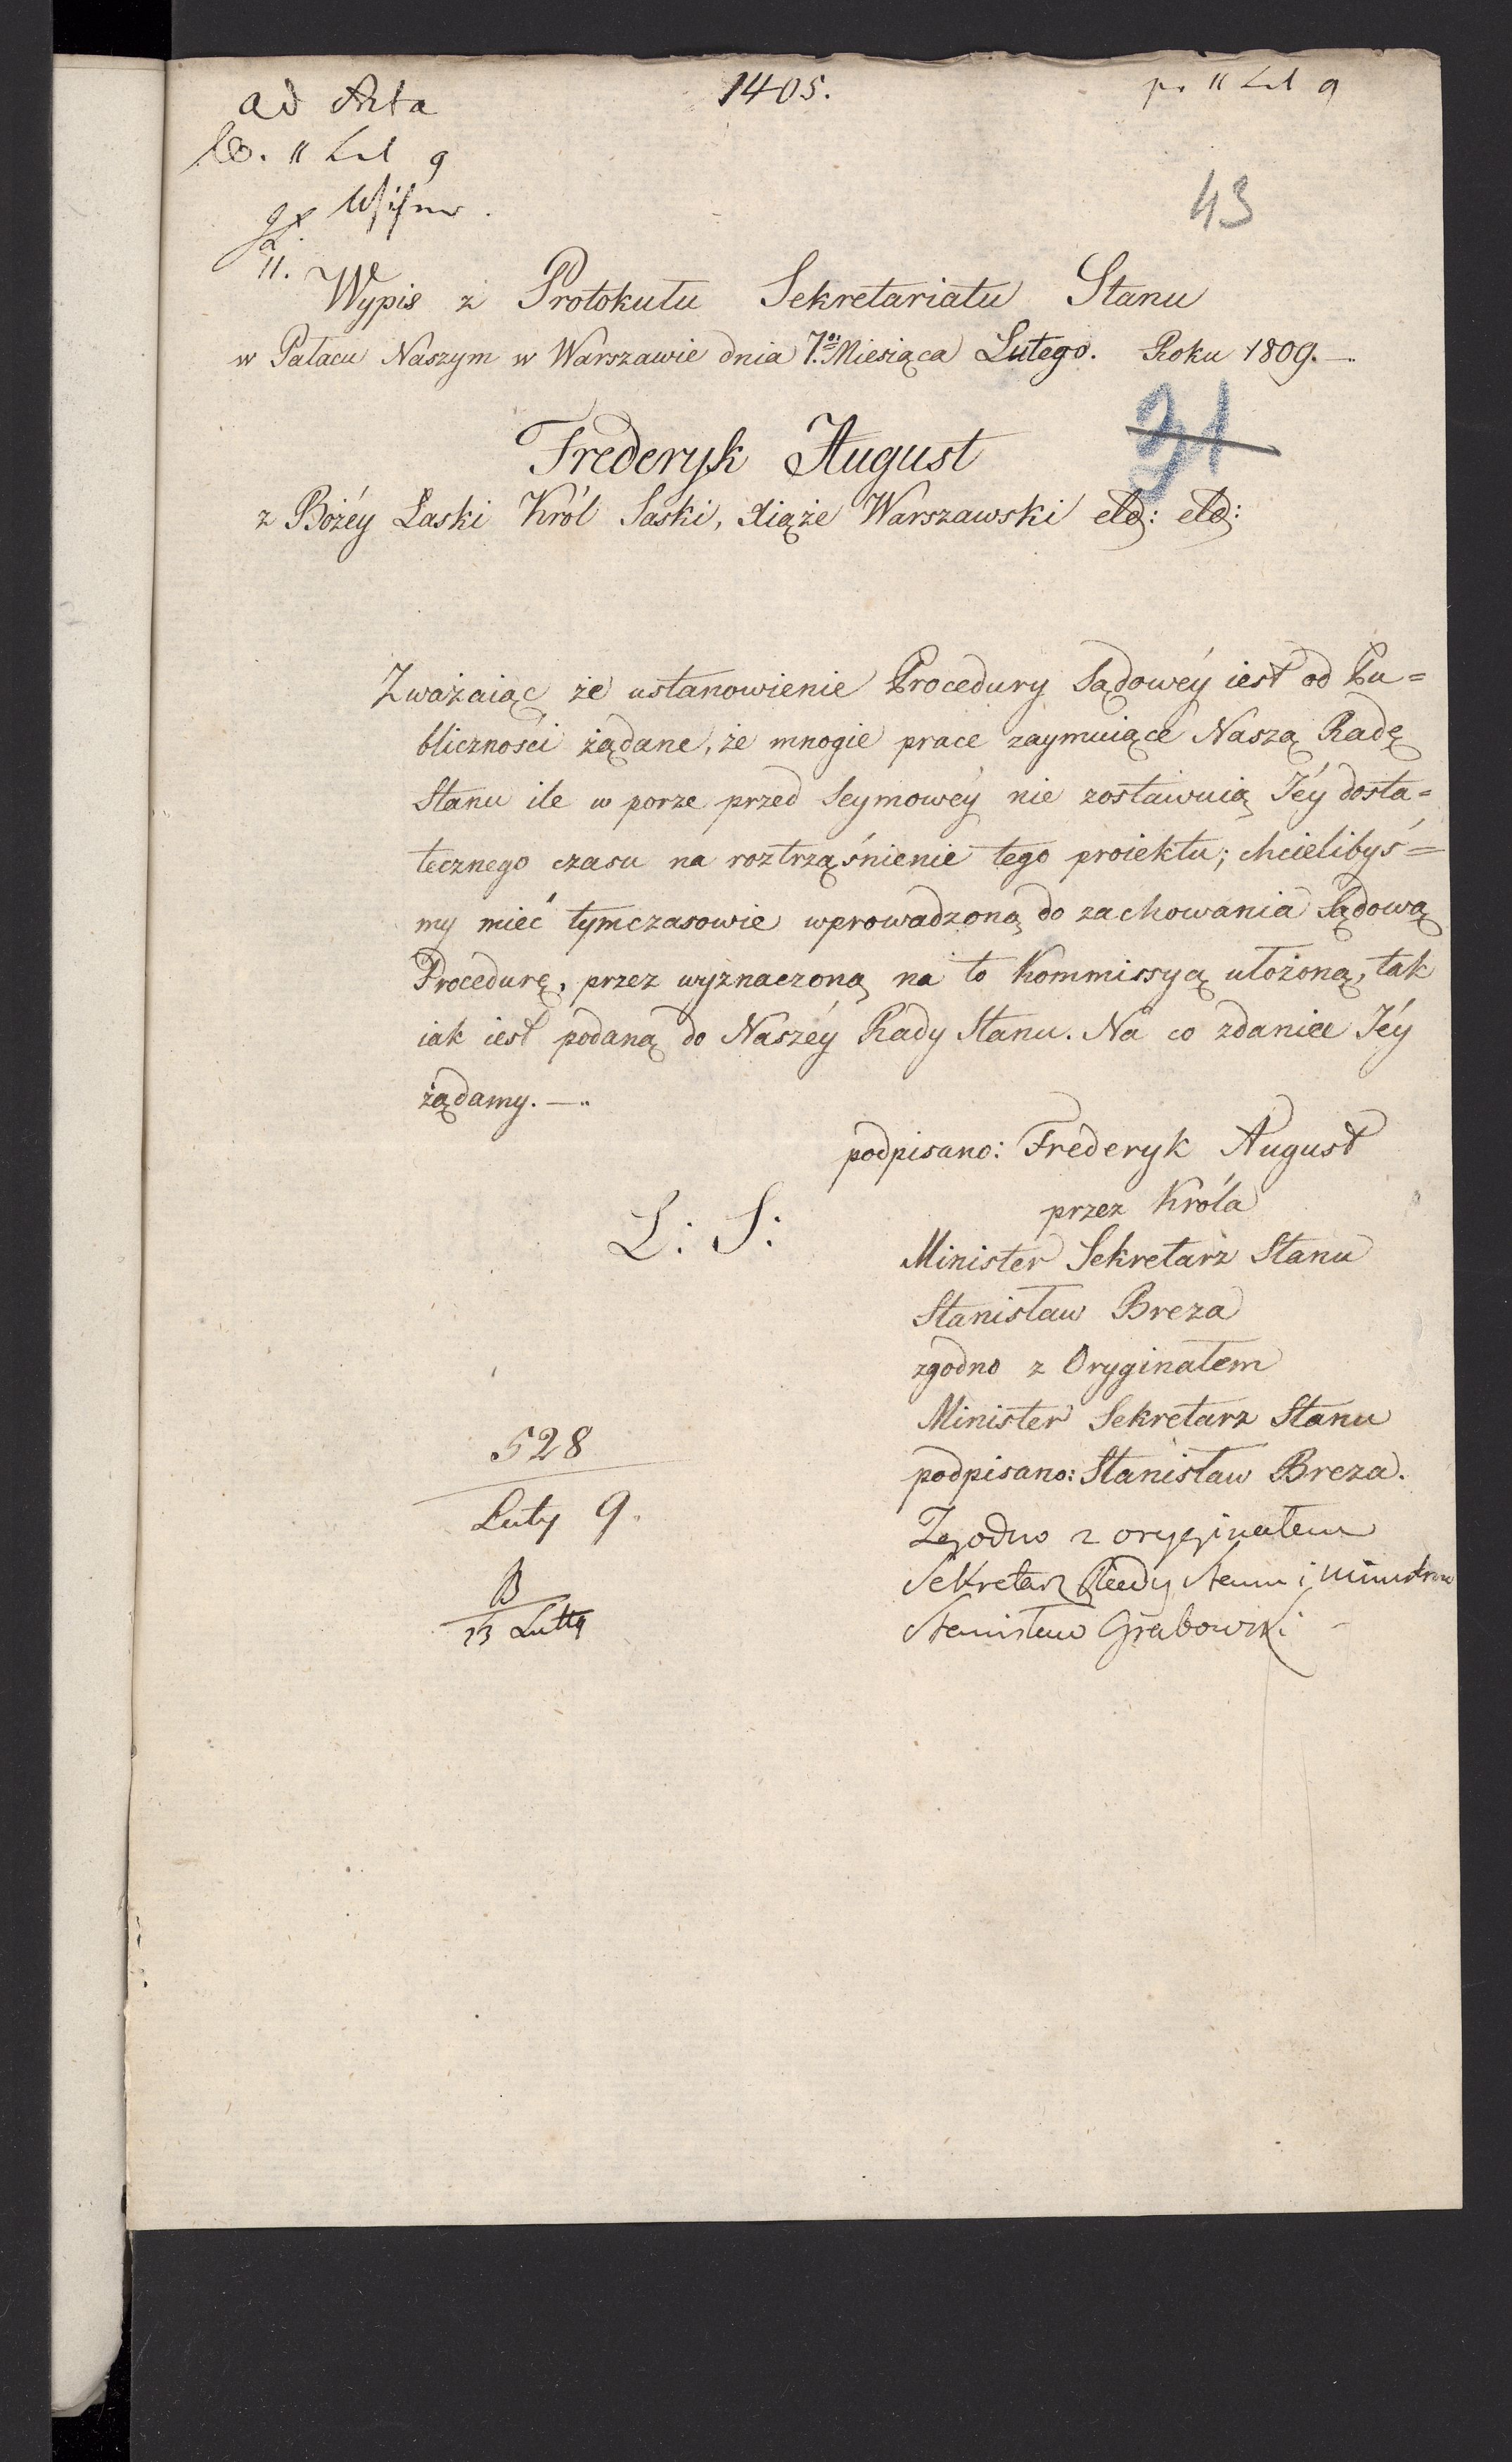 ad Acta
1405.
43
11.
Wypis z Protokułu Sekretariatu Stanu
w Pałacu Naszym w Warszawie dnia 7.º Miesiąca Lutego. Roku 1809. —
31
Frederyk August
z Bożéy Łaski Król Saski, Xiąże Warszawski etc: etc:
Zważaiąc że ustanowienie Procedury Sądowéy iest od Pu=
bliczności żądane, że mnogie prace zaymuiące Naszą Radę
Stanu ile w porze przed Seymowéy nie zostawuią Jéy dosta=
tecznego czasu na roztrząśnienie tego proiektu; chcielibyś=
my mieć tymczasowie wprowadzoną do zachowania Sądową
Procedurę, przez wyznaczoną na to Kommissyą ułożoną, tak
iak iest podaną do Naszéy Rady Stanu. Na co zdanie Jéy
żądamy. —
podpisano: Frederyk August
przez Króla
L: S:
Minister Sekretarz Stanu
Stanisław Breza
zgodno z Oryginałem
Minister Sekretarz Stanu
podpisano: Stanisław Breza.
528
Luty 9.
Zgodno z oryginałem
Sekretarz Rady Stanu i Ministrów
Stanisław Grabowski
B